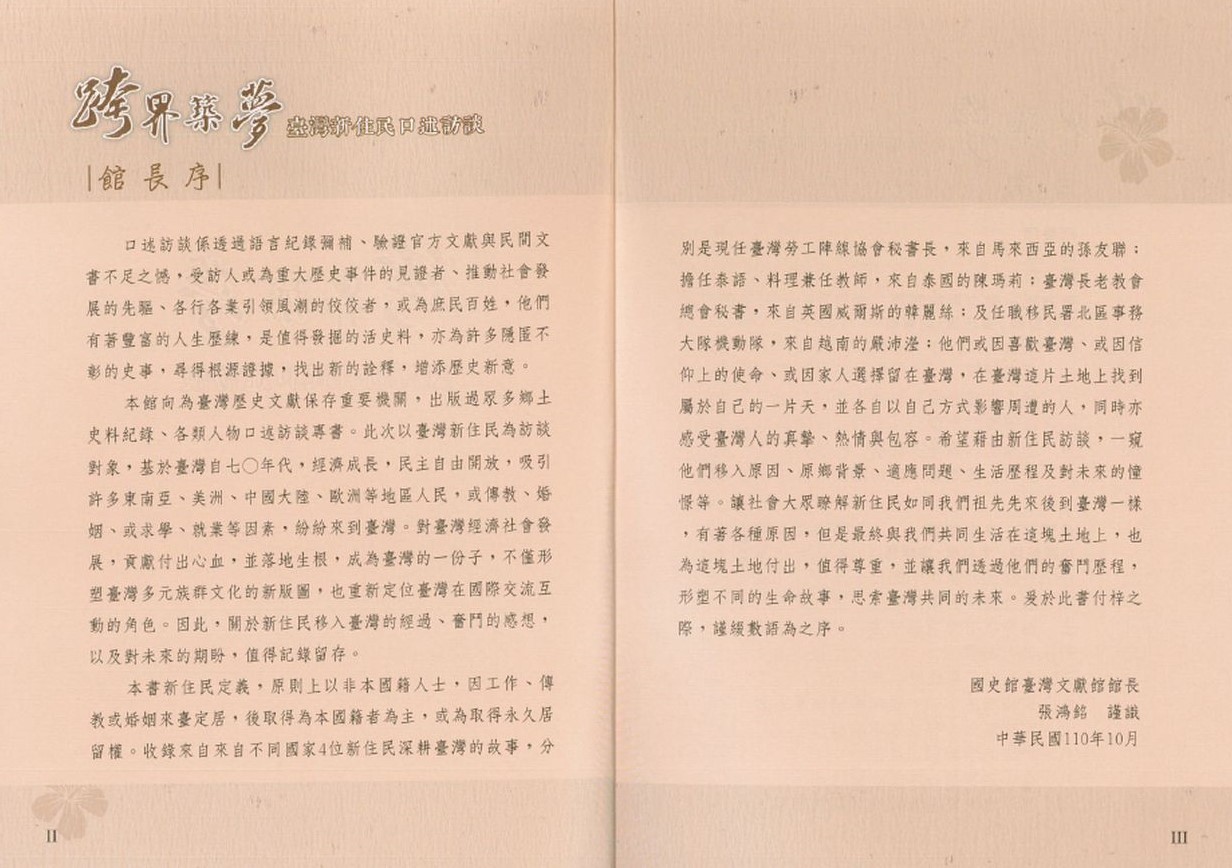 跨界築夢 臺灣新住民口述訪談
|館長序|
口述訪談係透過語言紀錄彌補、驗證官方文獻與民間文
書不足之憾，受訪人或為重大歷史事件的見證者、推動社會發
展的先驅、各行各業引領風潮的佼佼者，或為庶民百姓，他們
有著豐富的人生歷練，是值得發掘的活史料，亦為許多隱匿不
彰的史事，尋得根源證據，找出新的詮釋，增添歷史新意。
本館向為臺灣歷史文獻保存重要機關，出版過眾多鄉土
史料紀錄、各類人物口述訪談專書。此次以臺灣新住民為訪談
對象，基於臺灣自七〇年代，經濟成長，民主自由開放，吸引
許多東南亞、美洲、中國大陸、歐洲等地區人民，或傳教、婚
姻、或求學、就業等因素，紛紛來到臺灣。對臺灣經濟社會發
展，貢獻付出心血，並落地生根，成為臺灣的一份子，不僅形
塑臺灣多元族群文化的新版圖，也重新定位臺灣在國際交流互
動的角色。因此，關於新住民移入臺灣的經過、奮鬥的感想，
以及對未來的期盼，值得記錄留存。
本書新住民定義，原則上以非本國籍人士，因工作、傳
教或婚姻來臺定居，後取得為本國籍者為主，或為取得永久居
留權。收錄來自來自不同國家4位新住民深耕臺灣的故事，分
II
別是現任臺灣勞工陣線協會秘書長，來自馬來西亞的孫友聯；
擔任泰語、料理兼任教師，來自泰國的陳瑪莉；臺灣長老教會
總會秘書，來自英國威爾斯的韓麗絲；及任職移民署北區事務
大隊機動隊，來自越南的嚴沛瀅；他們或因喜歡臺灣、或因信
仰上的使命、或因家人選擇留在臺灣，在臺灣這片土地上找到
屬於自己的一片天，並各自以自己方式影響周遭的人，同時亦
感受臺灣人的真摯、熱情與包容。希望藉由新住民訪談，一窺
他們移入原因、原鄉背景、適應問題、生活歷程及對未來的憧
憬等。讓社會大眾瞭解新住民如同我們祖先先來後到臺灣一樣
，有著各種原因，但是最終與我們共同生活在這塊土地上，也
為這塊土地付出，值得尊重，並讓我們透過他們的奮鬥歷程，
形塑不同的生命故事，思索臺灣共同的未來。爰於此書付梓之
際，謹綴數語為之序。
國史館臺灣文獻館館長
張鴻銘　謹識
中華民國110年10月
III